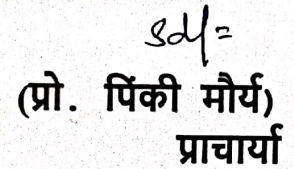 Sd/=
(प्रो. पिंकी मौर्य)
प्राचार्या